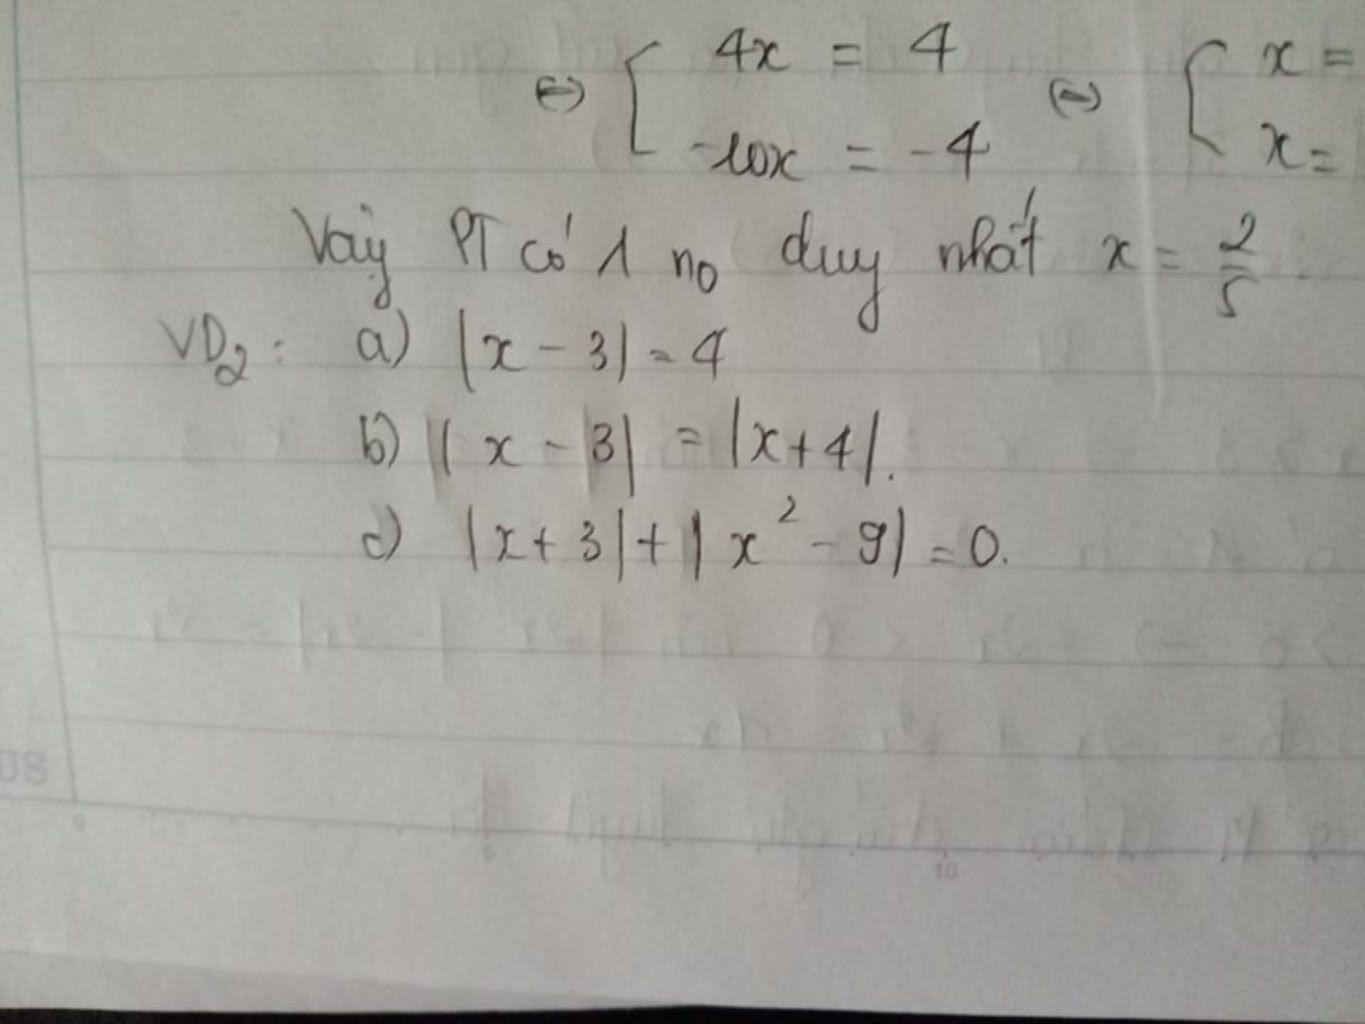 ⇔ [ 4x = 4 ⇔ [ x =
-10x = -4 x =
Vậy PT có 1 no duy nhất x = 2/5.
VD2: a) |x - 3| = 4
b) | x - 3| = |x + 4|.
c) |x + 3| + | x² - 9| = 0.
US
10